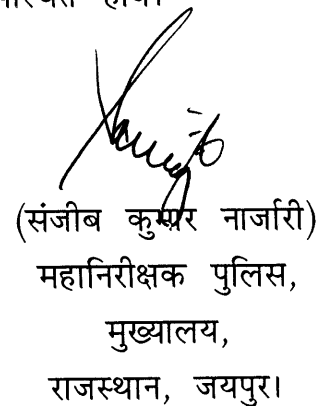 (संजीब कुमार नार्जारी)
महानिरीक्षक पुलिस,
मुख्यालय,
राजस्थान, जयपुर।